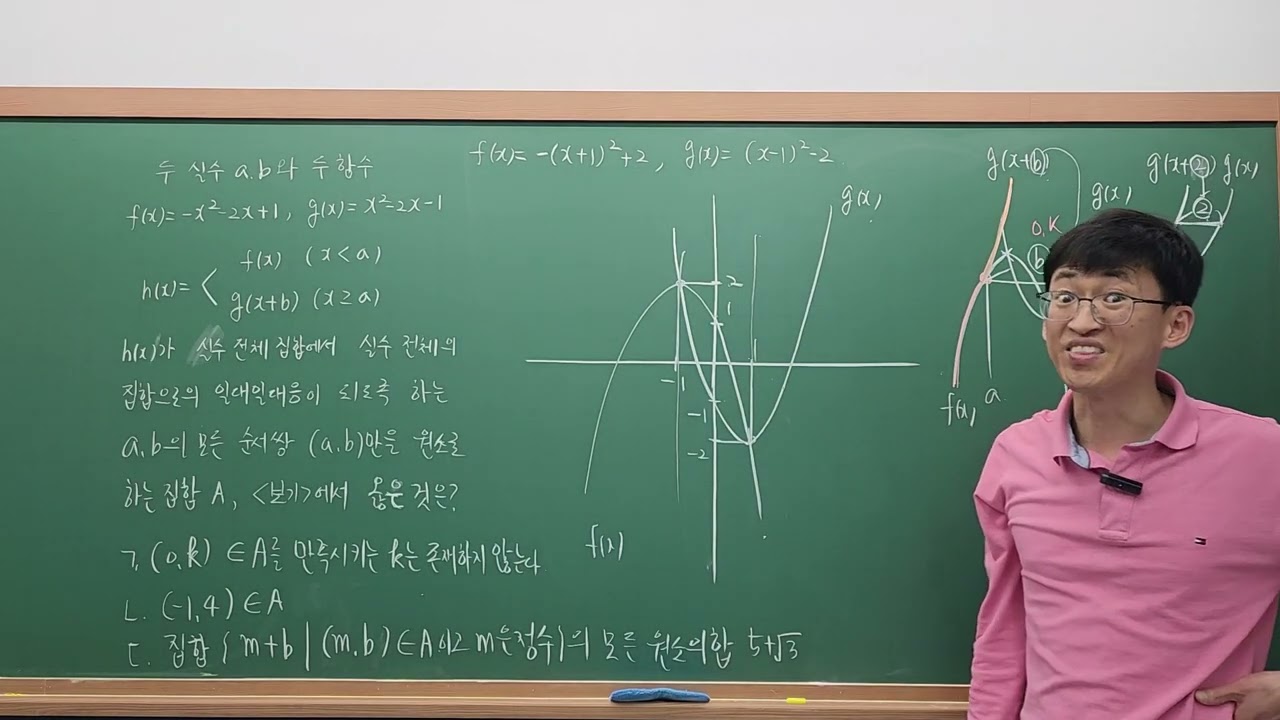 두 실수 a.b와 두 함수
f(x)=-x²-2x+1, g(x)= x²-2x-1
h(x)= < f(x) (x<a)
g(x+b) (x≥a)
h(x)가 실수 전체 집합에서 실수 전체의
집합으로의 일대일대응이 되도록 하는
a,b의 모든 순서쌍 (a,b)만을 원소로
하는 집합 A, <보기>에서 옳은 것은?
ㄱ, (0,k) ∈A를 만족시키는 k는 존재하지 않는다.
ㄴ. (-1,4) ∈A
ㄷ. 집합 { m+b | (m,b)∈A이고 m은정수}의 모든 원소의합 5+√3
f(x)= -(x+1)²+2, g(x)= (x-1)²-2
g(x)
2
1
-1
-1
-2
f(x)
g(x+b)
g(x)
O.K
b
f(x)
a
g(x+2) g(x)
2